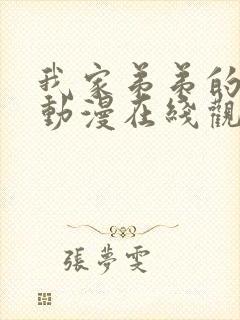 我家弟弟的
動漫在綫觀
張夢雯